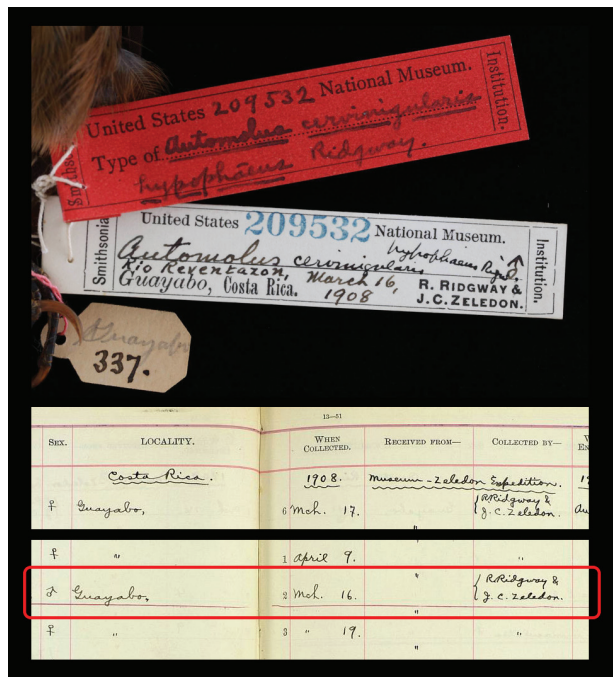 United States 209532 National Museum.
Type of Automolus cervinigularis
hypophaeus Ridgway.
Smithso
Institution.
United States 209532 National Museum.
Automolus cervinigularis hypophaeus Ridgw. ↑
Rio Reventazon, March 16,
Guayabo, Costa Rica. 1908
R. RIDGWAY &
J.C. ZELEDON.
Smithsonia
Institution.
Guayabo
337.
13—51
SEX. LOCALITY. WHEN COLLECTED. RECEIVED FROM— COLLECTED BY—
Costa Rica. 1908. Museum-Zeledon Expedition. 19
♀ Guayabo, 6 Mch. 17. " { R Ridgway & J. C. Zeledon. Au
♀ " 1 April 9. " "
♂ Guayabo, 2 Mch. 16. " { R Ridgway & J. C. Zeledon.
♀ " 3 " 19. " "